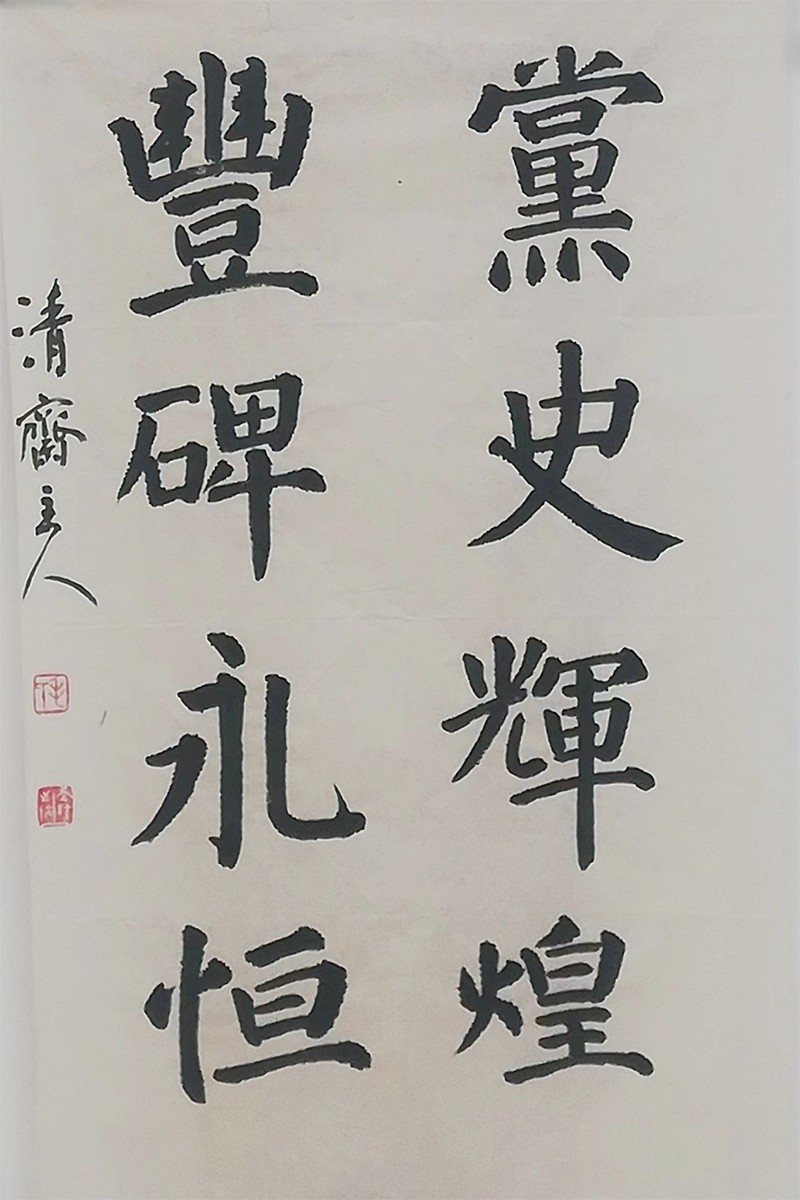 黨史輝煌
豐碑永恒
清齋主人